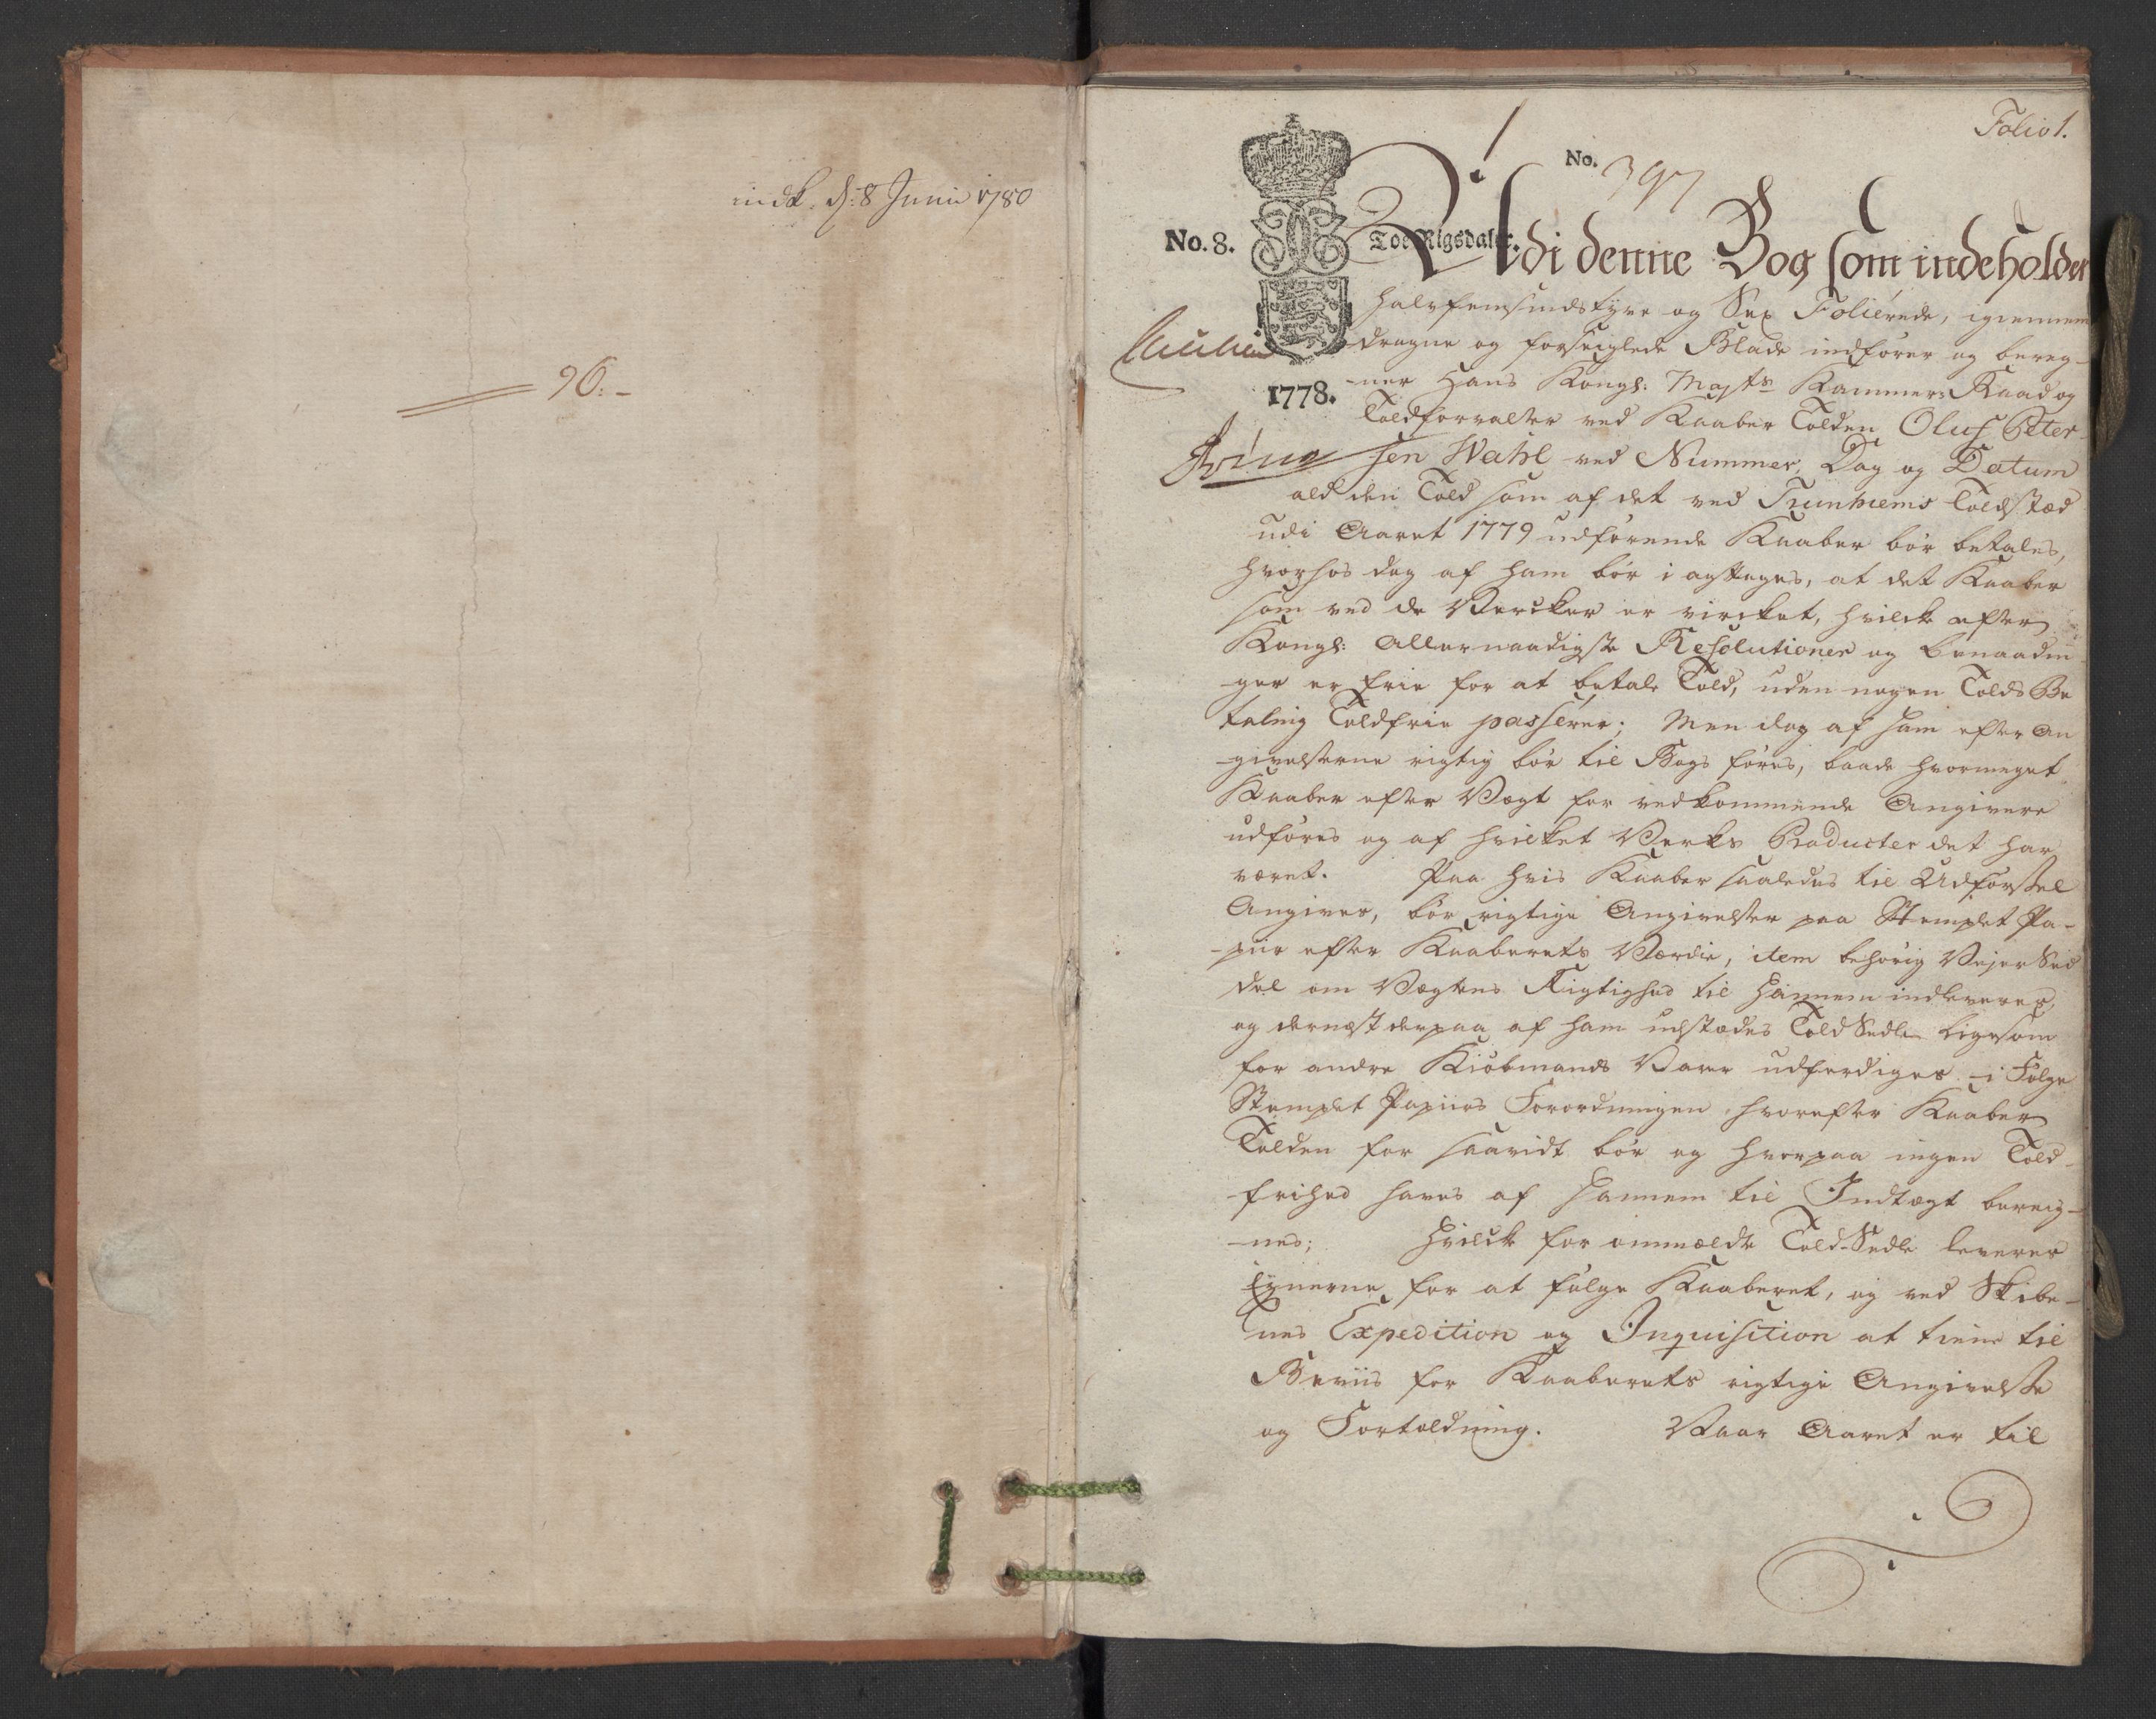 indk. d: 8 Junii 1780
96:-
Folio 1.
No. 397
No. 8.
Toe Rigsdaler.
Udi denne Bog som indeholder
halvfemsindstyve og Sex Folierede, igiennem
dragne og forseiglede Blade indfører og bereg-
1778.
-ner Hans Kongl: Majts Kammer Raad og
Toldforvalter ved Kaaber Tolden Oluf Peter
sen Wahl ved Nummer, Dag og Datum
ald den Told som af det ved Trunhiems Toldsted
udi Aaret 1779 udførende Kaaber bør betales,
hvorhos dog af ham bør i agttages, at det Kaaber
som ved de Vercker er vircket, hvilcke efter
Kongl: Allernaadigste Resolutioner og benaadin
ger er frie for at betale Told, uden nogen Tolds Be
taling Toldfrie passerer; Men dog af ham efter An
-givelserne rigtig bør til Bogs føres, baade hvormeget
Kaaber efter Vægt for vedkommende Angivere
udføres og af hvilket Verks Producter det har
været. Paa hvis Kaaber saaledes til Udførsel
Angives, bør rigtige Angivelser paa Stemplet Pa-
-piir efter Kaaberets Værdie, item behørig Vejer Sed
del om Vægtens Rigtighed til Hannem indleveres,
og dernæst derpaa af ham udstædes Told Sedler ligesom
for andre Kiøbmands Varer udferdiges i Følge
Stemplet Papiirs Forordningen, hvorefter Kaaber
Tolden for saavidt bør og hvorpaa ingen Told-
-frihed haves af Hannem til Indtægt bereig-
-nes; Hvilcke for ommeldte Told-Sedler leveres
Eyerne for at følge Kaaberet, og ved Skibe-
nes Expedition og Inquisition at tiene til
Beviis for Kaaberets rigtige Angivelse
og Fortoldning. Naar Aaret er til